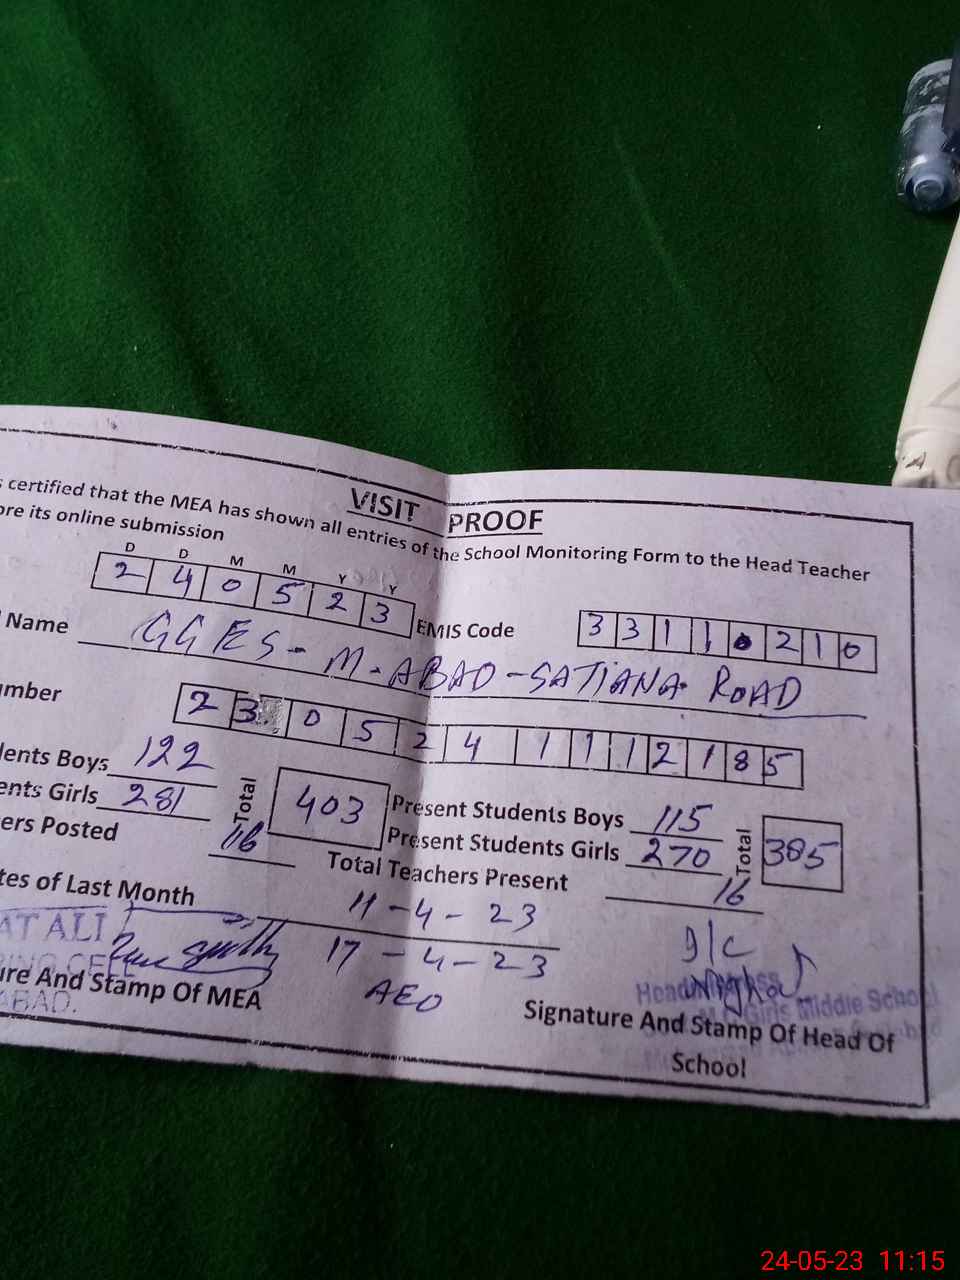 VISIT PROOF
s certified that the MEA has shown all entries of the School Monitoring Form to the Head Teacher
ore its online submission
D D M M Y Y
2 4 0 5 2 3
EMIS Code 3 3 1 1 0 2 1 0
Name GGES - M-ABAD - SATIANA ROAD
umber 2 3 0 5 2 4 1 1 1 2 1 8 5
dents Boys 122 Total 403 Present Students Boys 115 Total 385
ents Girls 281 Present Students Girls 270
ers Posted 16 Total Teachers Present 16
tes of Last Month 11-4-23
17-4-23
AEO
I/C
AT ALI
RING CELL
ABAD.
ure And Stamp Of MEA
Girls Middle School
Signature And Stamp Of Head Of
School
24-05-23 11:15